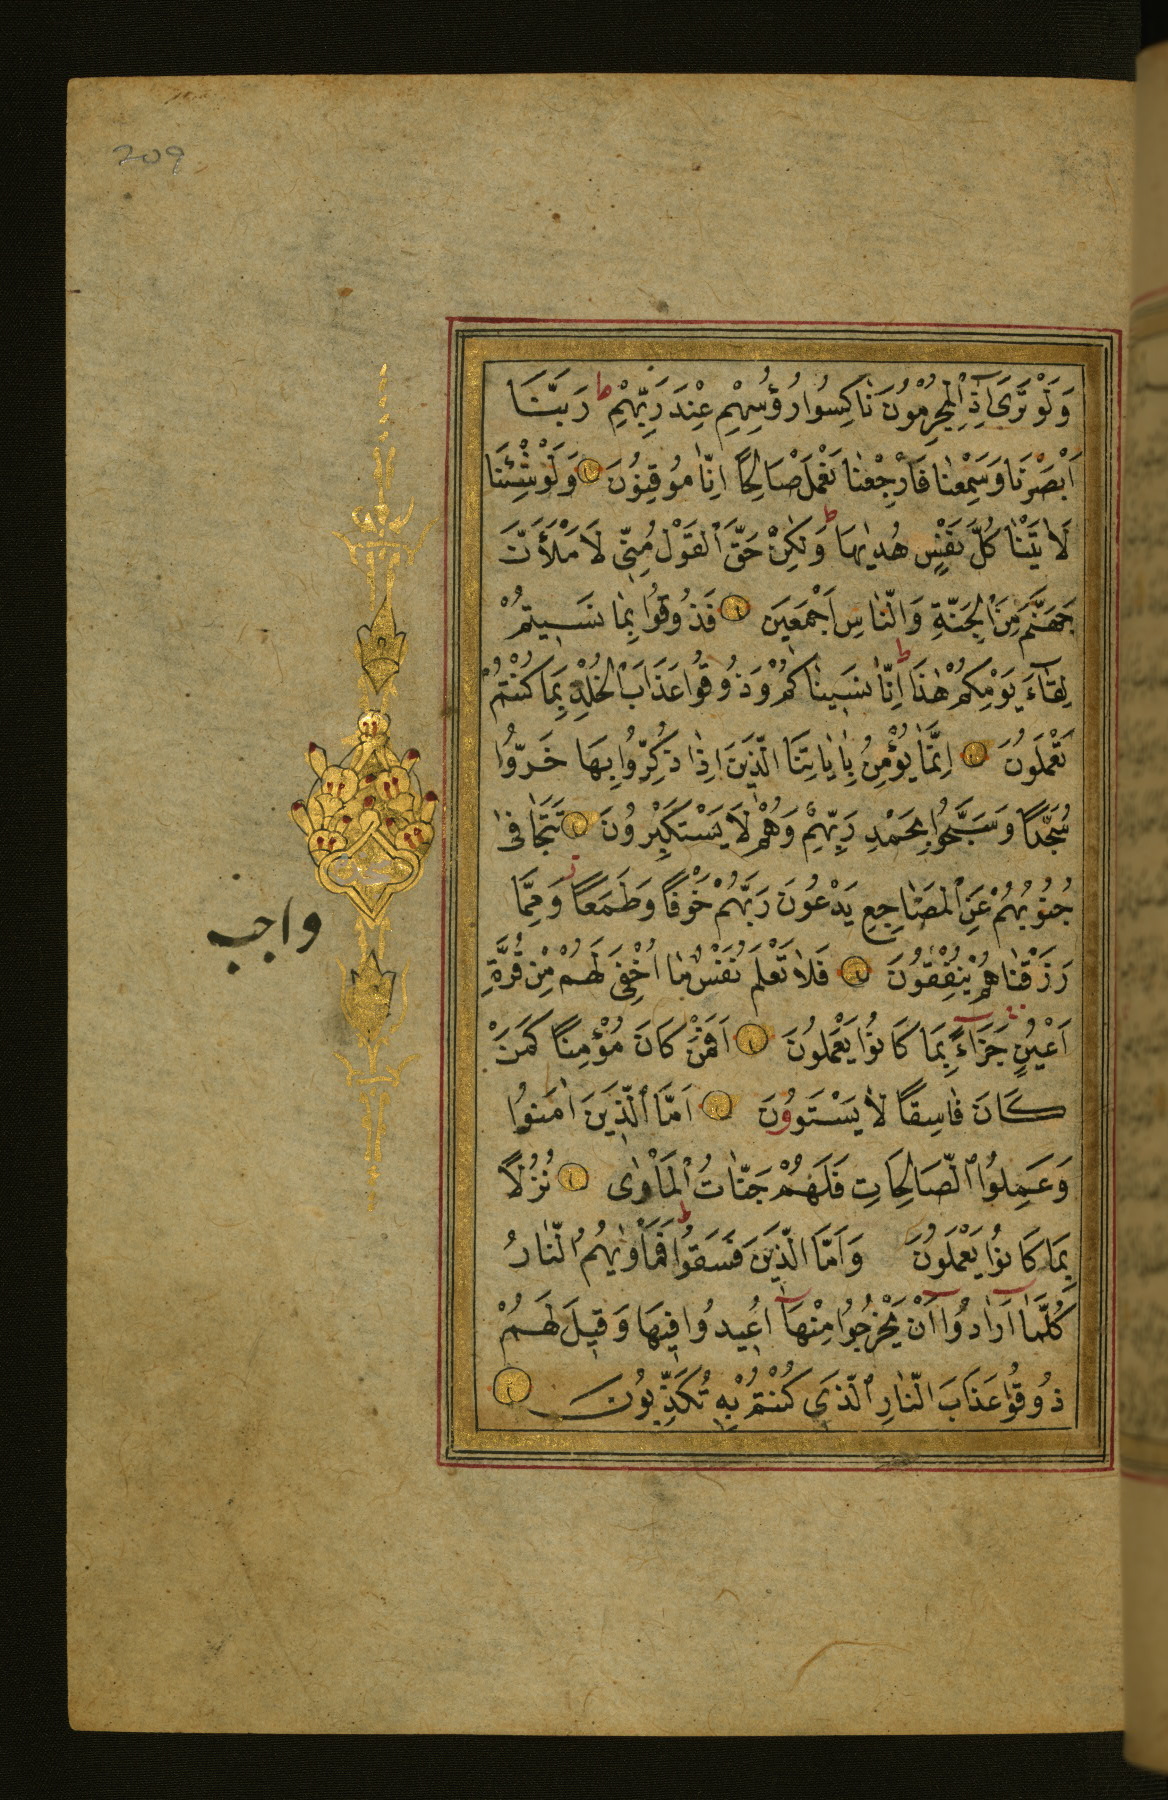 209
وَلَوْ تَرَىٰ اِذِ الْمُجْرِمُونَ نَاكِسُوا رُؤُسِهِمْ عِنْدَ رَبِّهِمْ ط رَبَّنَا
اَبْصَرْنَا وَسَمِعْنَا فَارْجِعْنَا نَعْمَلْ صَالِحًا اِنَّا مُوقِنُونَ وَلَوْ شِئْنَا
لَاٰتَيْنَا كُلَّ نَفْسٍ هُدٰيهَا ط وَلٰكِنْ حَقَّ الْقَوْلُ مِنِّى لَاَمْلَأَنَّ
جَهَنَّمَ مِنَ الْجِنَّةِ وَالنَّاسِ اَجْمَعِينَ فَذُوقُوا بِمَا نَسِيتُمْ
لِقَاءَ يَوْمِكُمْ هٰذَا ط اِنَّا نَسِينَاكُمْ وَذُوقُوا عَذَابَ الْخُلْدِ بِمَا كُنْتُمْ
تَعْمَلُونَ اِنَّمَا يُؤْمِنُ بِاٰيَاتِنَا الَّذِينَ اِذَا ذُكِّرُوا بِهَا خَرُّوا
سُجَّدًا وَسَبَّحُوا بِحَمْدِ رَبِّهِمْ وَهُمْ لَا يَسْتَكْبِرُونَ تَتَجَافٰى
جُنُوبُهُمْ عَنِ الْمَضَاجِعِ يَدْعُونَ رَبَّهُمْ خَوْفًا وَطَمَعًا وَمِمَّا
رَزَقْنَاهُمْ يُنْفِقُونَ فَلَا تَعْلَمُ نَفْسٌ مَا اُخْفِىَ لَهُمْ مِنْ قُرَّةِ
اَعْيُنٍ جَزَاءً بِمَا كَانُوا يَعْمَلُونَ اَفَمَنْ كَانَ مُؤْمِنًا كَمَنْ
كَانَ فَاسِقًا لَا يَسْتَوُونَ اَمَّا الَّذِينَ اٰمَنُوا
وَعَمِلُوا الصَّالِحَاتِ فَلَهُمْ جَنَّاتُ الْمَأْوٰى نُزُلًا
بِمَا كَانُوا يَعْمَلُونَ وَاَمَّا الَّذِينَ فَسَقُوا فَمَأْوٰيهُمُ النَّارُ ط
كُلَّمَا اَرَادُوا اَنْ يَخْرُجُوا مِنْهَا اُعِيدُوا فِيهَا وَقِيلَ لَهُمْ
ذُوقُوا عَذَابَ النَّارِ الَّذِى كُنْتُمْ بِهِ تُكَذِّبُونَ
واجب